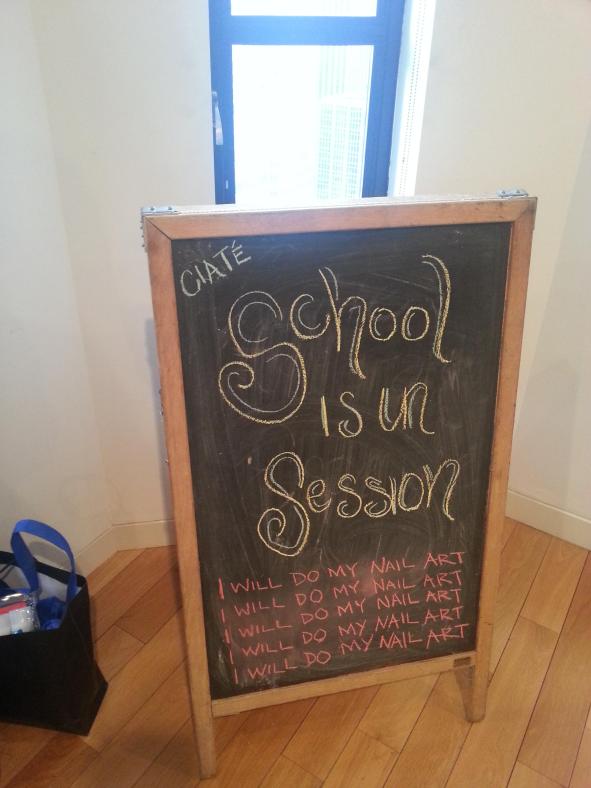 CIATÉ
School
is un
Session
I WILL DO MY NAIL ART
I WILL DO MY NAIL ART
I WILL DO MY NAIL ART
I WILL DO MY NAIL ART
I WILL DO MY NAIL ART